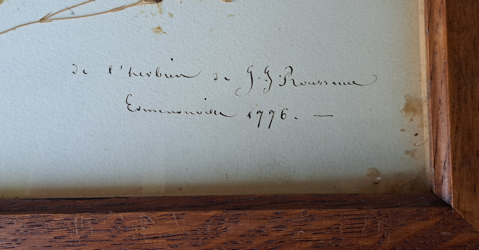 de l'herbier de J. J. Rousseau
Ermenonville 1776. —